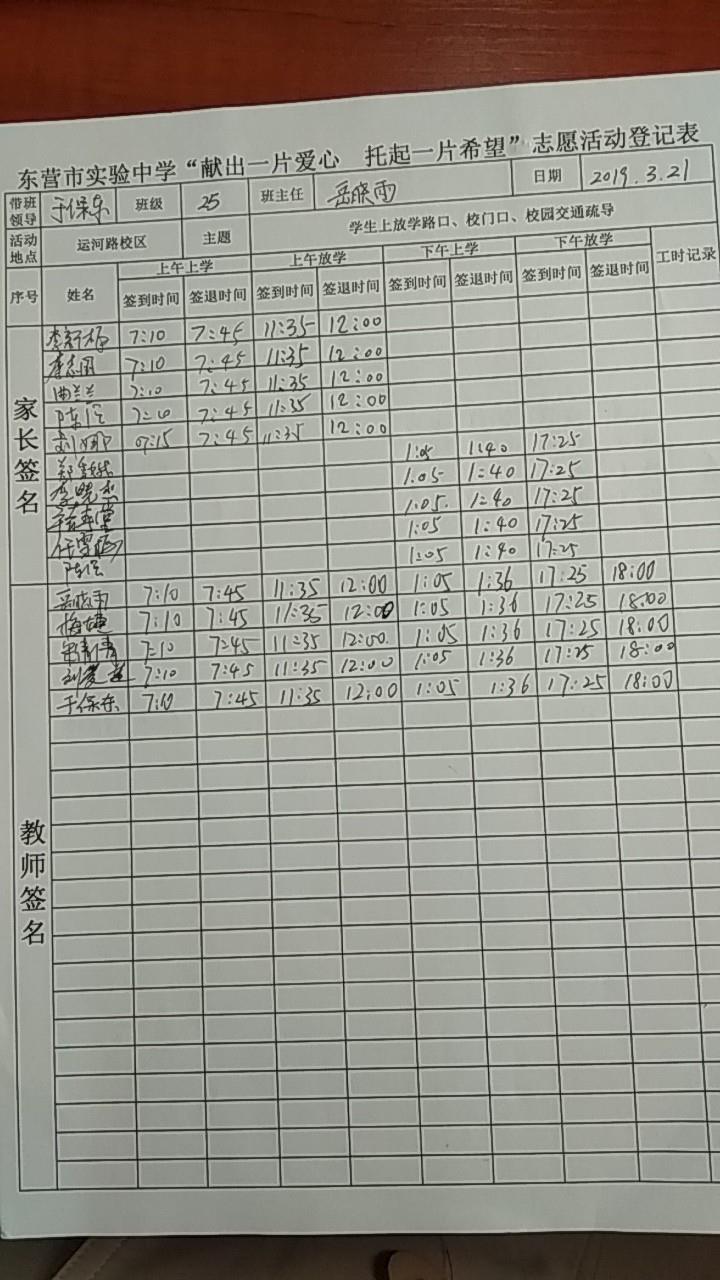 东营市实验中学“献出一片爱心 托起一片希望”志愿活动登记表
带班领导 于保东 班级 25 班主任 岳晓雨 日期 2019.3.21
活动地点 运河路校区 主题 学生上放学路口、校门口、校园交通疏导
序号 姓名 上午上学 上午放学 下午上学 下午放学 工时记录
签到时间 签退时间 签到时间 签退时间 签到时间 签退时间 签到时间 签退时间
家长签名
7:10 7:45 11:35 12:00
7:10 7:45 11:35 12:00
曲兰兰 7:10 7:45 11:35 12:00
7:10 7:45 11:35 12:00
刘娜 07:15 7:45 11:35 12:00
1:05 1:40 17:25
李晓 1:05 1:40 17:25
1:05. 1:40 17:25
任雪梅 1:05 1:40 17:25
1:05 1:40 17:25
教师签名
岳晓雨 7:10 7:45 11:35 12:00 1:05 1:36 17:25 18:00
梅婕 7:10 7:45 11:35 12:00 1:05 1:36 17:25 18:00
7:10 7:45 11:35 12:00. 1:05 1:36 17:25 18:00
7:10 7:45 11:35 12:00 1:05 1:36 17:25 18:00
于保东 7:10 7:45 11:35 12:00 1:05 1:36 17:25 18:00